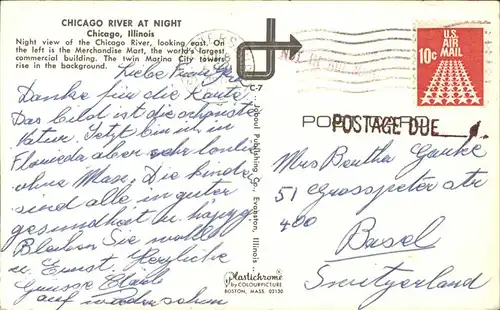 CHICAGO RIVER AT NIGHT
Chicago, Illinois
Night view of the Chicago River, looking east. On
the left is the Merchandise Mart, the world's largest
commercial building. The twin Marina City towers
rise in the background.
Liebe
Danke für die Karte
Das Bild ist die schönste
Natur. Jetzt bin ich in
Floruida aber sehr
ohne Max. Die Kinder
sind alle in guter
gesundheit u. happy
Bleiben Sie wohl
u. Ernst. Herzliche
Grüsse
auf wiedersehen
C-7
Jaboul Publishing Co., Evanston, Illinois
Plastichrome
by COLOURPICTURE
BOSTON, MASS. 02130
U.S.
AIR
MAIL
10c
POSTAGE DUE
Mrs Bertha
51 Grosspeter str
400
Basel
Switzerland